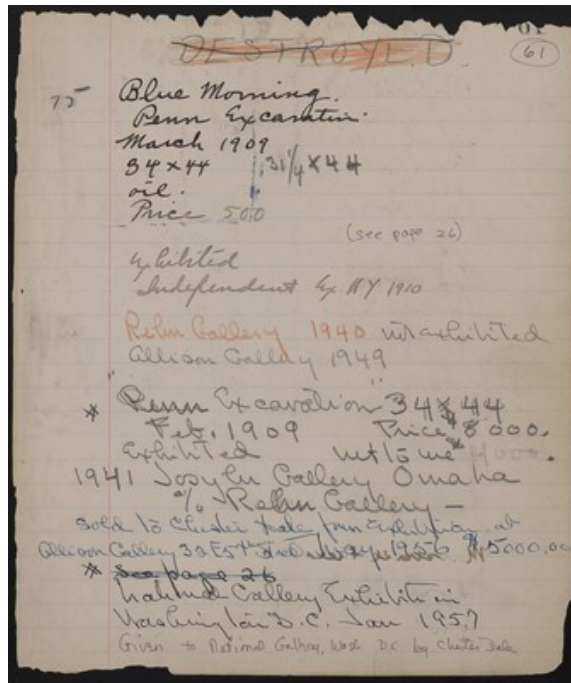 DESTROYED
61
75
Blue Morning.
Penn Excavation.
March 1909
34 x 44 31 1/4 x 44
oil.
Price 500
(see page 26)
Exhibited
Independent Ex NY 1910
Rehn Gallery 1940 not exhibited
Allison Gallery 1949
* Penn Excavation 34 x 44
Feb. 1909 Price $8000.
Exhibited net to me $4000.
1941 Joslyn Gallery Omaha
% Rehn Gallery –
Sold to Chester Dale from Exhibition at
Allison Gallery 32 E 57th St 1956 $5000.00
* See page 26
National Gallery Exhibition
Washington D.C. Jan 1957
Given to National Gallery, Wash D.C. by Chester Dale